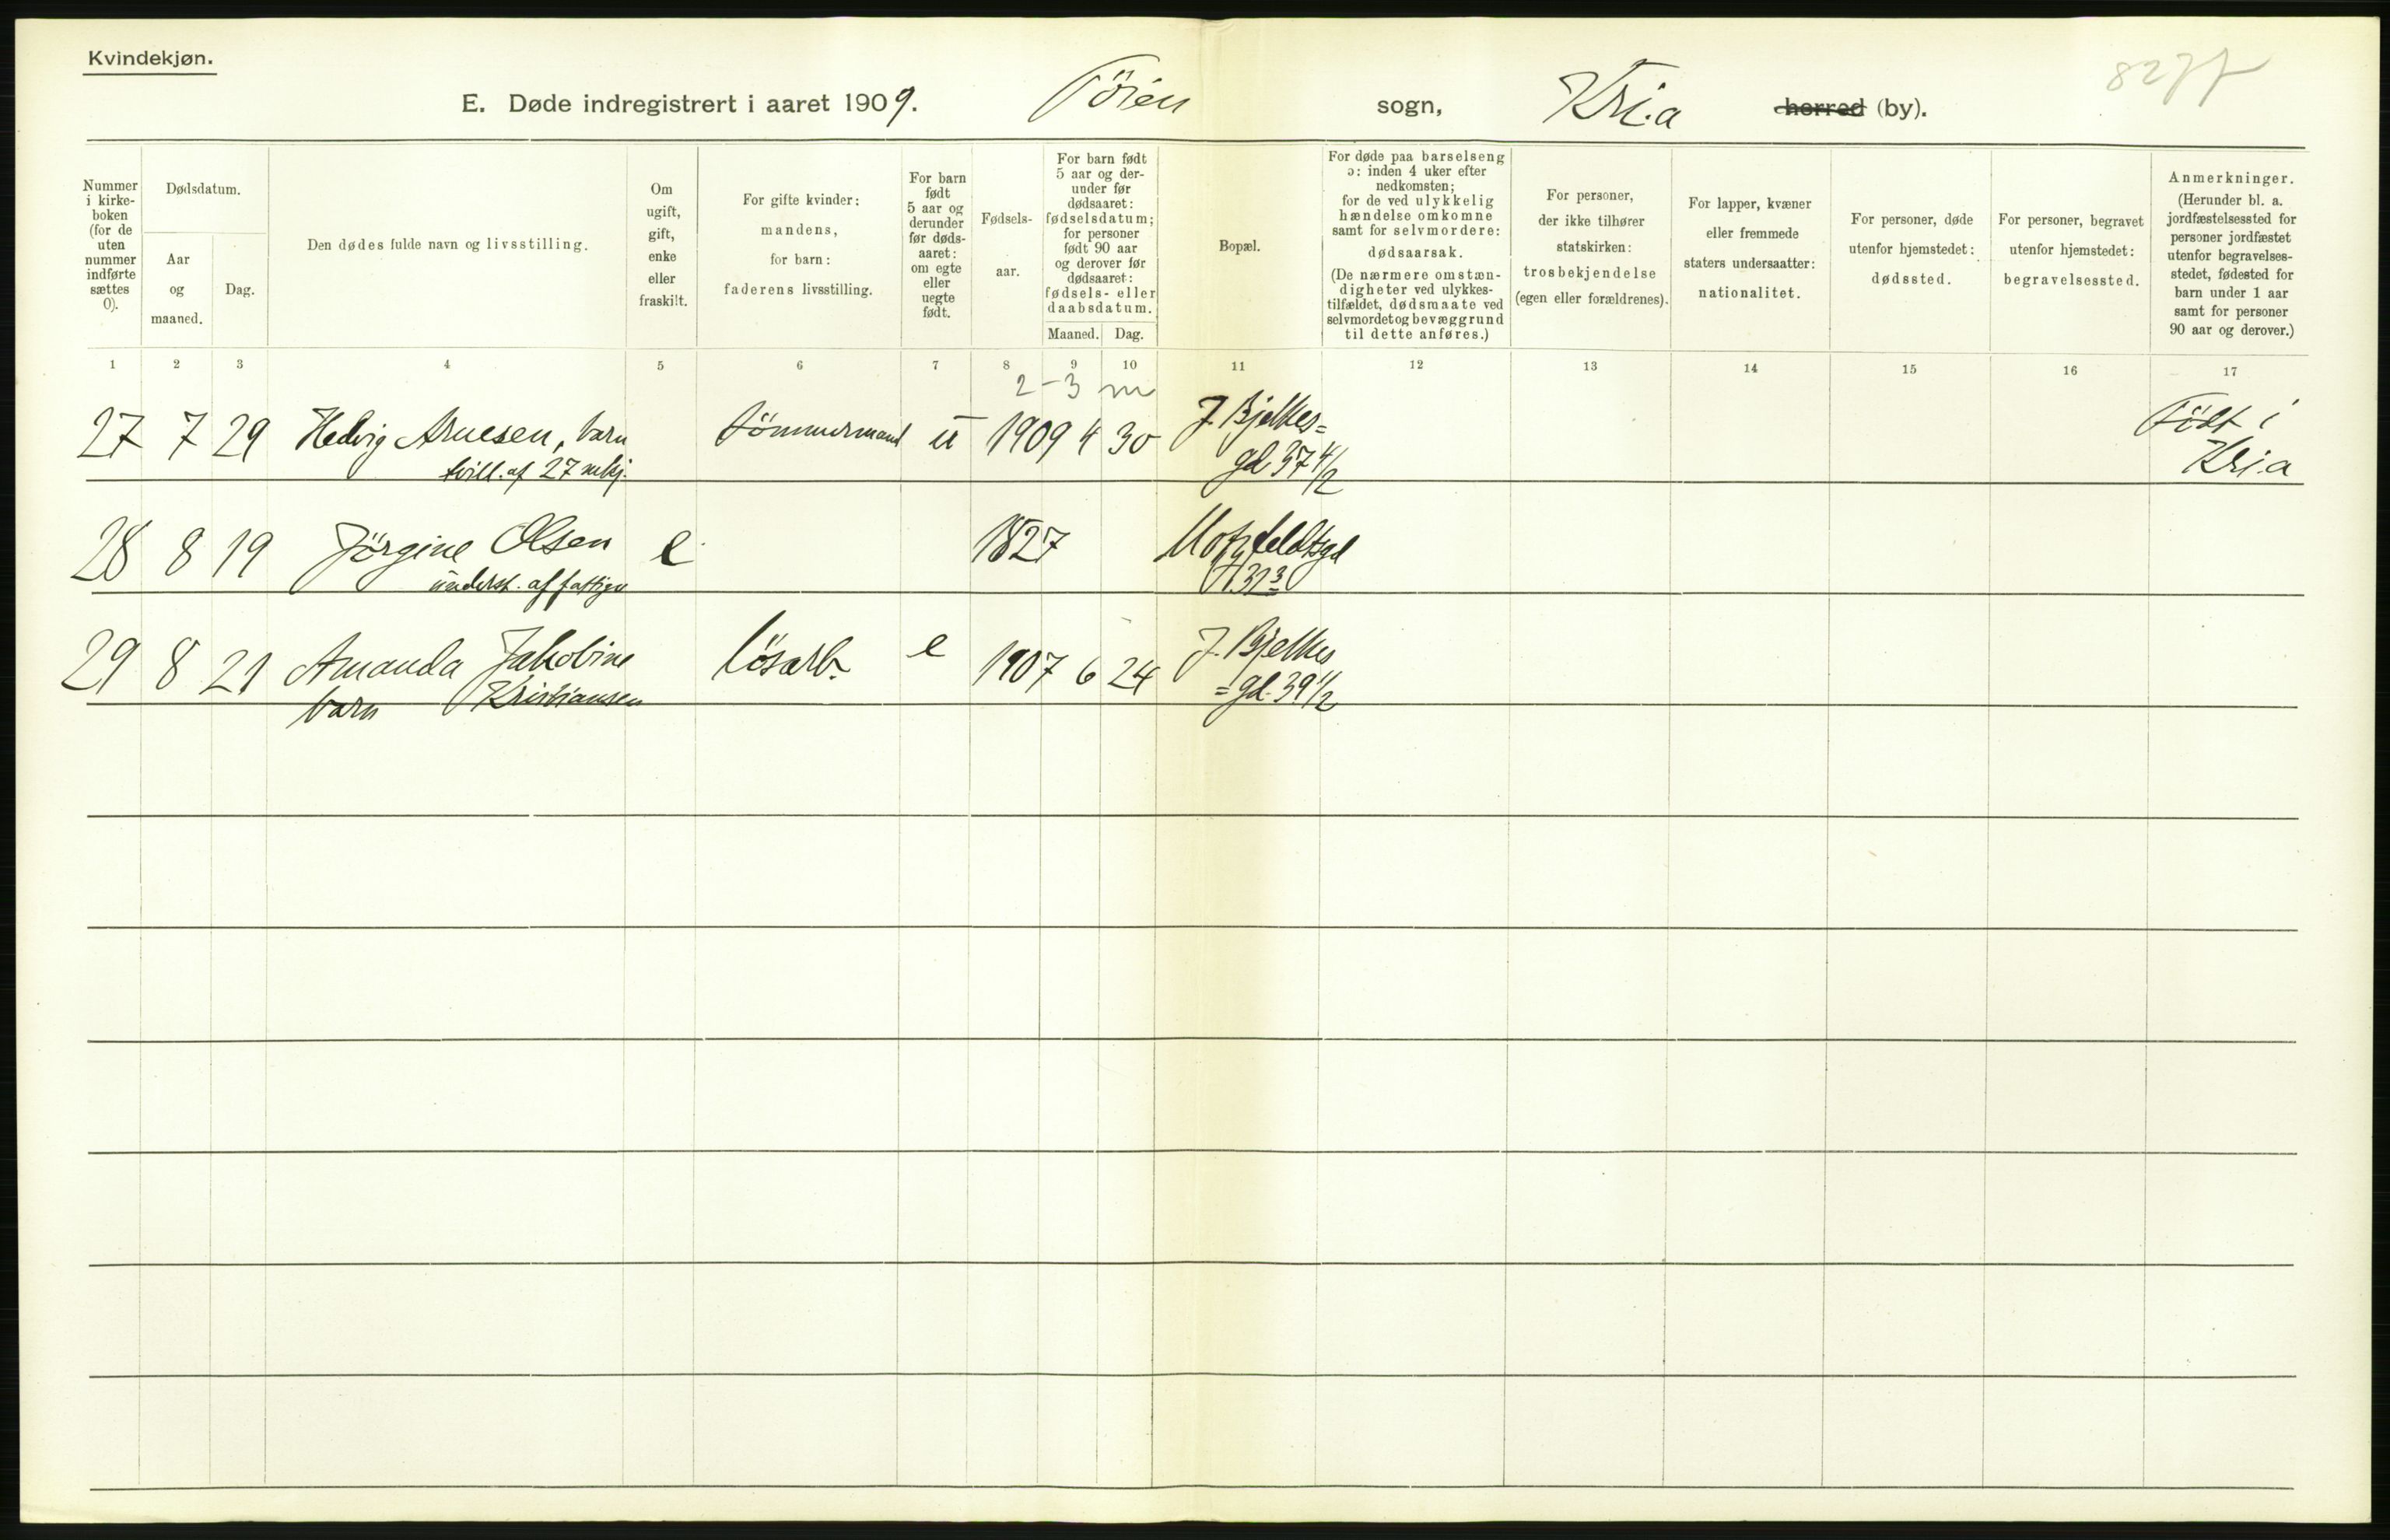 Kvindekjøn.
E. Døde indregistrert i aaret 1909. Töien sogn, Kri.a herred (by).
Nummer i kirke-boken (for de uten nummer indførte sættes 0).
Dødsdatum.
Aar og maaned.
Dag.
Den dødes fulde navn og livsstilling.
Om ugift, gift, enke eller fraskilt.
For gifte kvinder: mandens, for barn: faderens livsstilling.
For barn født 5 aar og derunder før døds-aaret: om egte eller uegte født.
Fødsels-aar.
For barn født 5 aar og der-under før dødsaaret: fødselsdatum; for personer født 90 aar og derover før dødsaaret: fødsels- eller daabsdatum.
Maaned. Dag.
Bopæl.
For døde paa barselseng ɔ: inden 4 uker efter nedkomsten; for de ved ulykkelig hændelse omkomne samt for selvmordere: dødsaarsak. (De nærmere omstæn-digheter ved ulykkes-tilfældet, dødsmaate ved selvmordet og bevæggrund til dette anføres.)
For personer, der ikke tilhører statskirken: trosbekjendelse (egen eller forældrenes).
For lapper, kvæner eller fremmede staters undersaatter: nationalitet.
For personer, døde utenfor hjemstedet: dødssted.
For personer, begravet utenfor hjemstedet: begravelsessted.
Anmerkninger. (Herunder bl. a. jordfæstelsessted for personer jordfæstet utenfor begravelses-stedet, fødested for barn under 1 aar samt for personer 90 aar og derover.)
1 2 3 4 5 6 7 8 9 10 11 12 13 14 15 16 17
2-3 m
27 7 29 Hedvig Arnesen, barn tömmermand u 1909 4 30 J. Bjelkes= Födt i
tvill. af 27 mkj. gd 37 4/2 Kri.a
28 8 19 Jörgine Olsen e 1827 Motzfeldtsgd
underst. af fattigv 31 3
29 8 21 Amanda Jakobine lösarb. e 1907 6 24 J. Bjelkes
barn Kristiansen =gd. 39 1/2